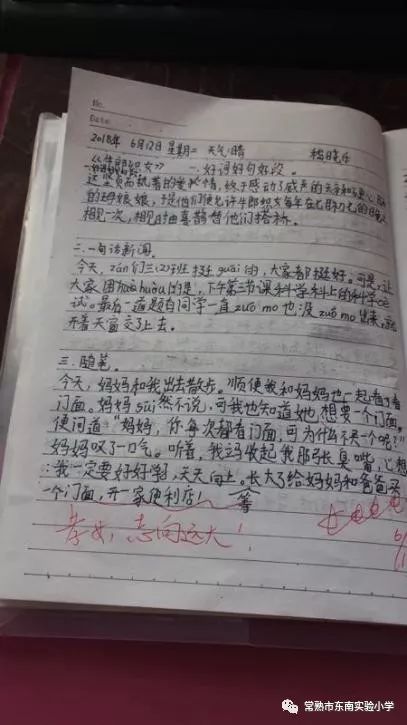 No.
Date
2018年 6月12日 星期二 天气:晴
《牛郎织女》 一.好词好句好段。
这坚贞而执著的爱情,终于感动了威严的天帝和
的王母娘娘,于是他们便允许牛郎织女每年在七月初七的
相见一次,相见时由喜鹊替他们搭桥。
二.一句话新闻。
今天,zán们三(2)班挺guāi的,大家都挺好。可是,让
大家困huò的是,下午第三节课科学科上的科学
试。最后一道题有同学一直zuó mo也没zuó mo出来,
开着天窗交了上去。
三.随笔。
今天,妈妈和我出去散步。顺便我和妈妈也一起看了看
门面。妈妈suī然不说,可我也知道她想要一个门面。
便问道:“妈妈,你每次都看门面,可为什么不买一个呢?”
妈妈叹了一口气。听着,我立马收起我那张臭嘴,心想
:我一定要好好学习,天天向上。长大了给妈妈和爸爸买
一个门面,开一家便利店!
等
孝女,志向远大!
常熟市东南实验小学